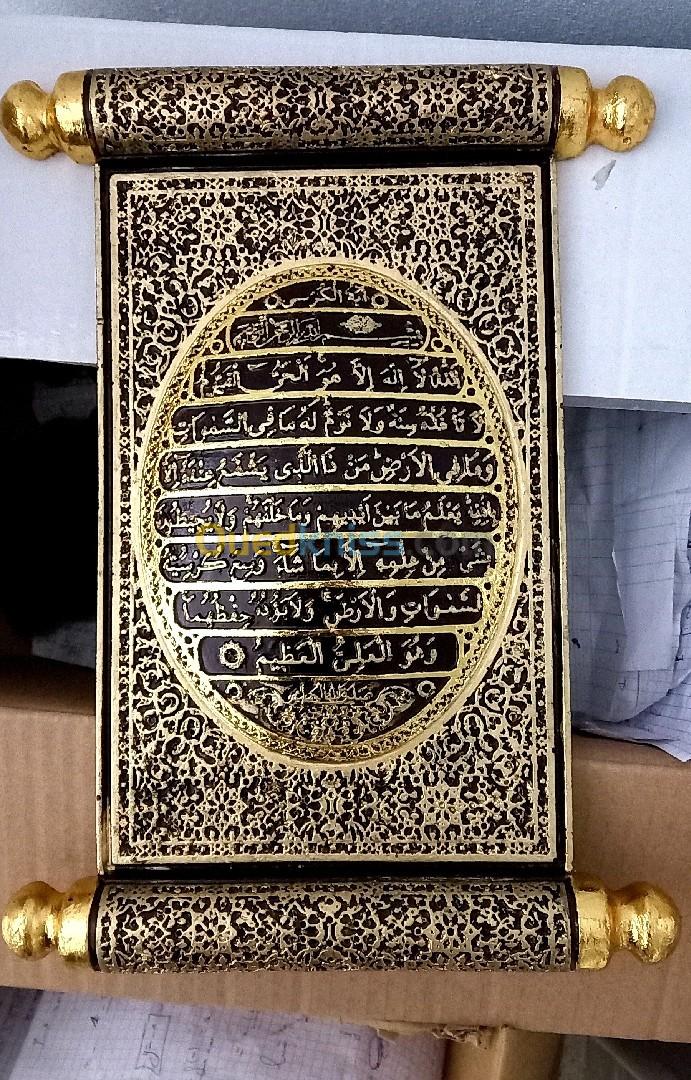 آية الكرسي
بسم الله الرحمن الرحيم
اَللّٰهُ لَا اِلٰهَ اِلَّا هُوَ الْحَيُّ الْقَيُّومُ
لَا تَأْخُذُهُ سِنَةٌ وَلَا نَوْمٌ لَهُ مَا فِي السَّمٰوَاتِ
وَمَا فِي الْاَرْضِ مَنْ ذَا الَّذِي يَشْفَعُ عِنْدَهُ اِلَّا
بِاِذْنِهِ يَعْلَمُ مَا بَيْنَ اَيْدِيهِمْ وَمَا خَلْفَهُمْ وَلَا يُحِيطُونَ
بِشَيْءٍ مِنْ عِلْمِهِ اِلَّا بِمَا شَاءَ وَسِعَ كُرْسِيُّهُ
السَّمٰوَاتِ وَالْاَرْضَ وَلَا يَؤُدُهُ حِفْظُهُمَا
وَهُوَ الْعَلِيُّ الْعَظِيمُ
Ouedkniss.com